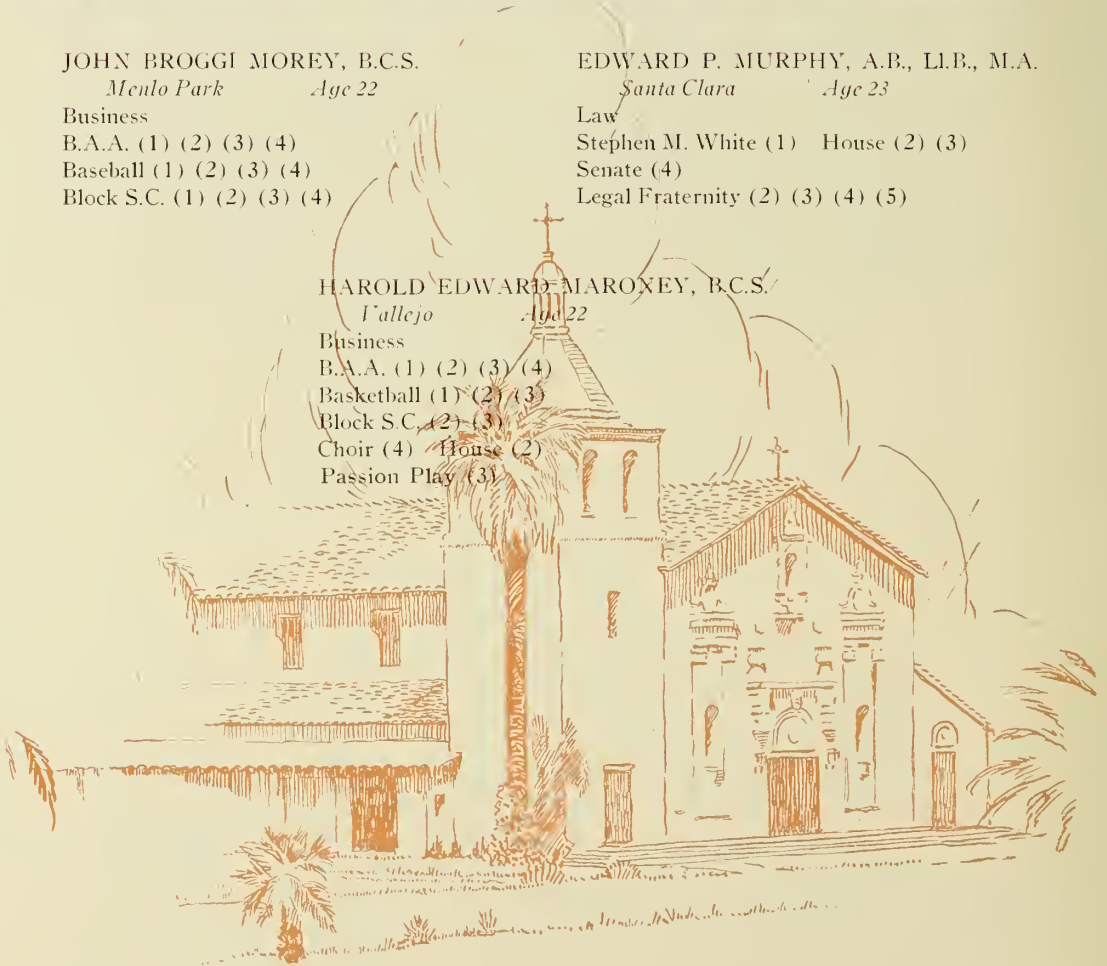 JOHN BROGGI MOREY, B.C.S.
Menlo Park Age 22
Business
B.A.A. (1) (2) (3) (4)
Baseball (1) (2) (3) (4)
Block S.C. (1) (2) (3) (4)
EDWARD P. MURPHY, A.B., Ll.B., M.A.
Santa Clara Age 23
Law
Stephen M. White (1) House (2) (3)
Senate (4)
Legal Fraternity (2) (3) (4) (5)
HAROLD EDWARD MARONEY, B.C.S.
Vallejo Age 22
Business
B.A.A. (1) (2) (3) (4)
Basketball (1) (2) (3)
Block S.C. (2) (3)
Choir (4) House (2)
Passion Play (3)